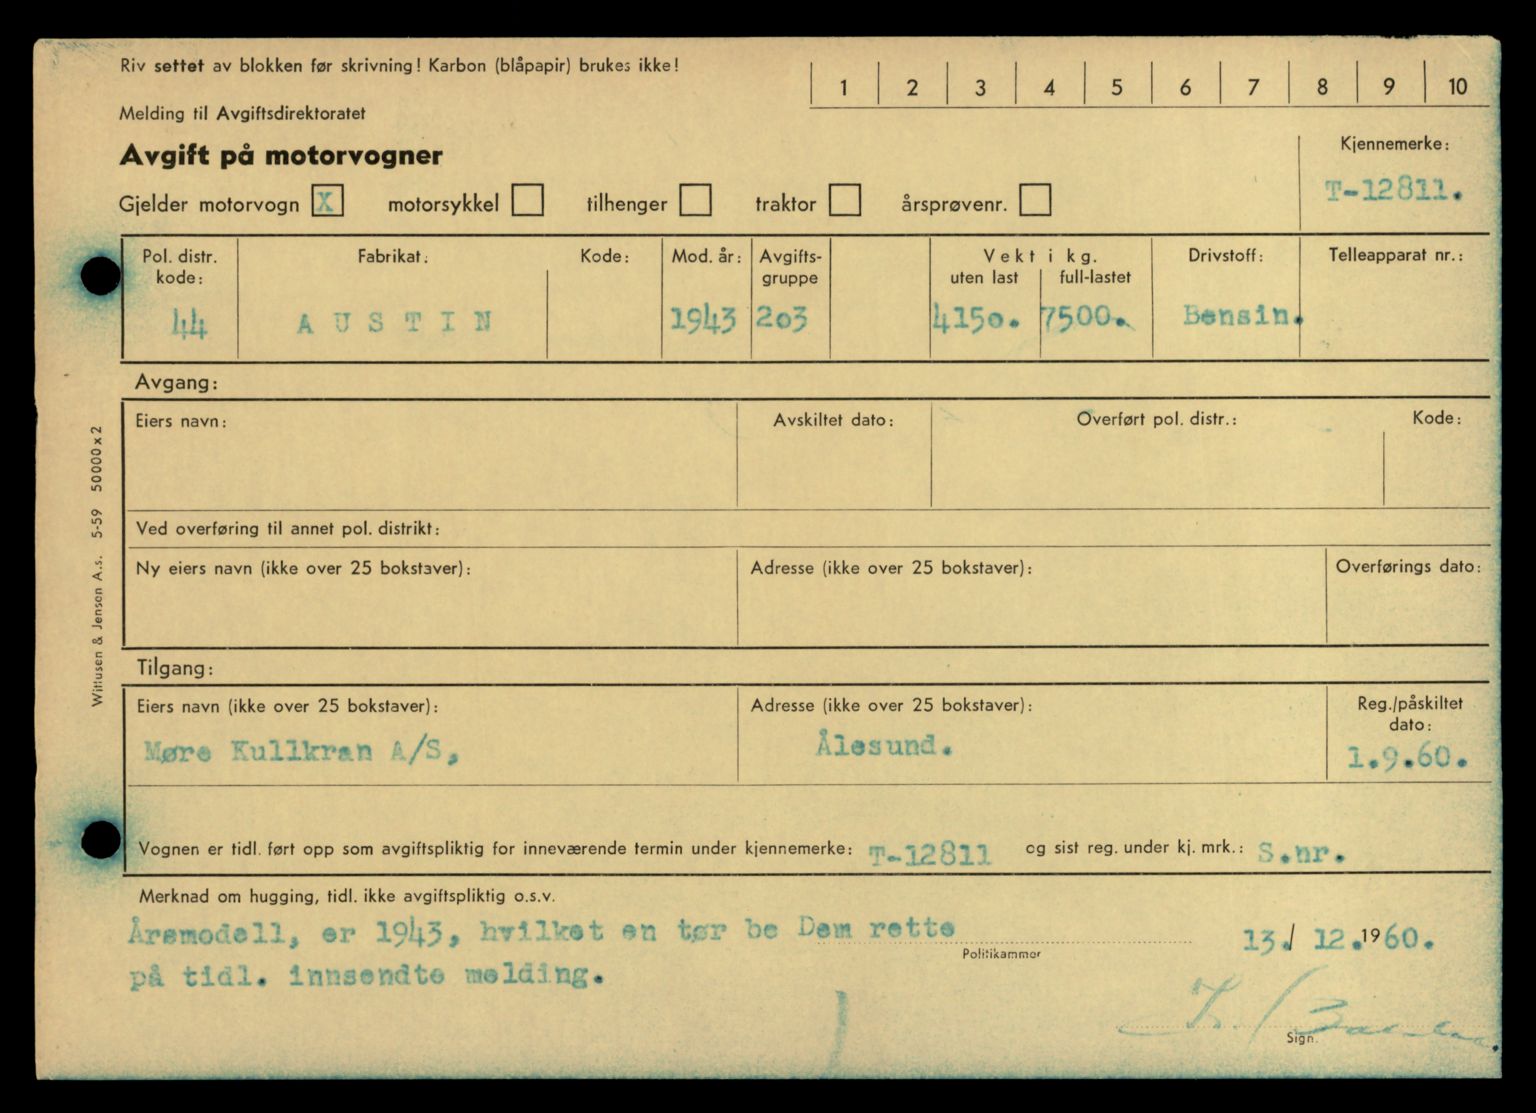 Riv settet av blokken før skrivning! Karbon (blåpapir) brukes ikke!
1 2 3 4 5 6 7 8 9 10
Melding til Avgiftsdirektoratet
Avgift på motorvogner
Kjennemerke:
T-12811.
Gjelder motorvogn X motorsykkel tilhenger traktor årsprøvenr.
Pol. distr. kode: Fabrikat: Kode: Mod. år: Avgifts-gruppe Vekt i kg. uten last full-lastet Drivstoff: Telleapparat nr.:
44 AUSTIN 1943 203 4150. 7500. Bensin.
Avgang:
Eiers navn: Avskiltet dato: Overført pol. distr.: Kode:
Ved overføring til annet pol. distrikt:
Ny eiers navn (ikke over 25 bokstaver): Adresse (ikke over 25 bokstaver): Overførings dato:
Tilgang:
Eiers navn (ikke over 25 bokstaver): Adresse (ikke over 25 bokstaver): Reg./påskiltet dato:
Møre Kullkran A/S, Ålesund. 1.9.60.
Vognen er tidl. ført opp som avgiftspliktig for inneværende termin under kjennemerke: T-12811 og sist reg. under kj. mrk.: S.nr.
Merknad om hugging, tidl. ikke avgiftspliktig o.s.v.
Årsmodell, er 1943, hvilket en tør be Dem rette
på tidl. innsendte melding.
Politikammer
13./ 12.1960.
Sign.
Wittusen & Jensen A.s. 5-59 50000x2